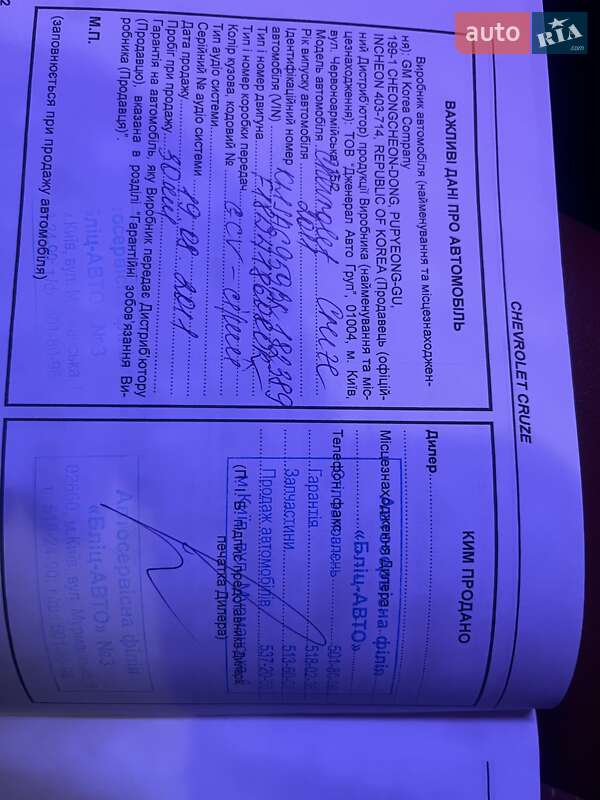 auto RIA .com
CHEVROLET CRUZE
ВАЖЛИВІ ДАНІ ПРО АВТОМОБІЛЬ
Виробник автомобіля (найменування та місцезнаходжен-
ня): GM Korea Company
199-1 CHEONGCHEON-DONG, PUPYEONG-GU,
INCHEON 403-714, REPUBLIC OF KOREA (Продавець (офіцій-
ний Дистриб'ютор) продукції Виробника (найменування та міс-
цезнаходження): ТОВ "Дженерал Авто Груп", 01004, м. Київ,
вул. Червоноармійська, 15/2
Модель автомобіля Chevrolet Cruze
Рік випуску автомобіля 2011
Ідентифікаційний номер
автомобіля (VIN)
Тип і номер двигуна
Тип і номер коробки передач
Колір кузова, кодовий № GCV -
Тип аудіо системи
Серійний № аудіо системи
Дата продажу 19.08.2011
Пробіг при продажу
Гарантія на автомобіль, яку Виробник передає Дистриб'ютору
(Продавцю), вказана в розділі "Гарантійні зобов'язання Ви-
робника (Продавця)".
М.П.
(заповнюється при продажу автомобіля)
КИМ ПРОДАНО
Дилер
Місцезнаходження Дилера
«Бліц-АВТО»
Телефон/факс
Гарантія 518-02-
Запчастини 513-60-
Продаж автомобілів 537-20-
(П. І. Б. підпис представника Дилера
печатка Дилера)
Автосервісна філія
«Бліц-АВТО» №3